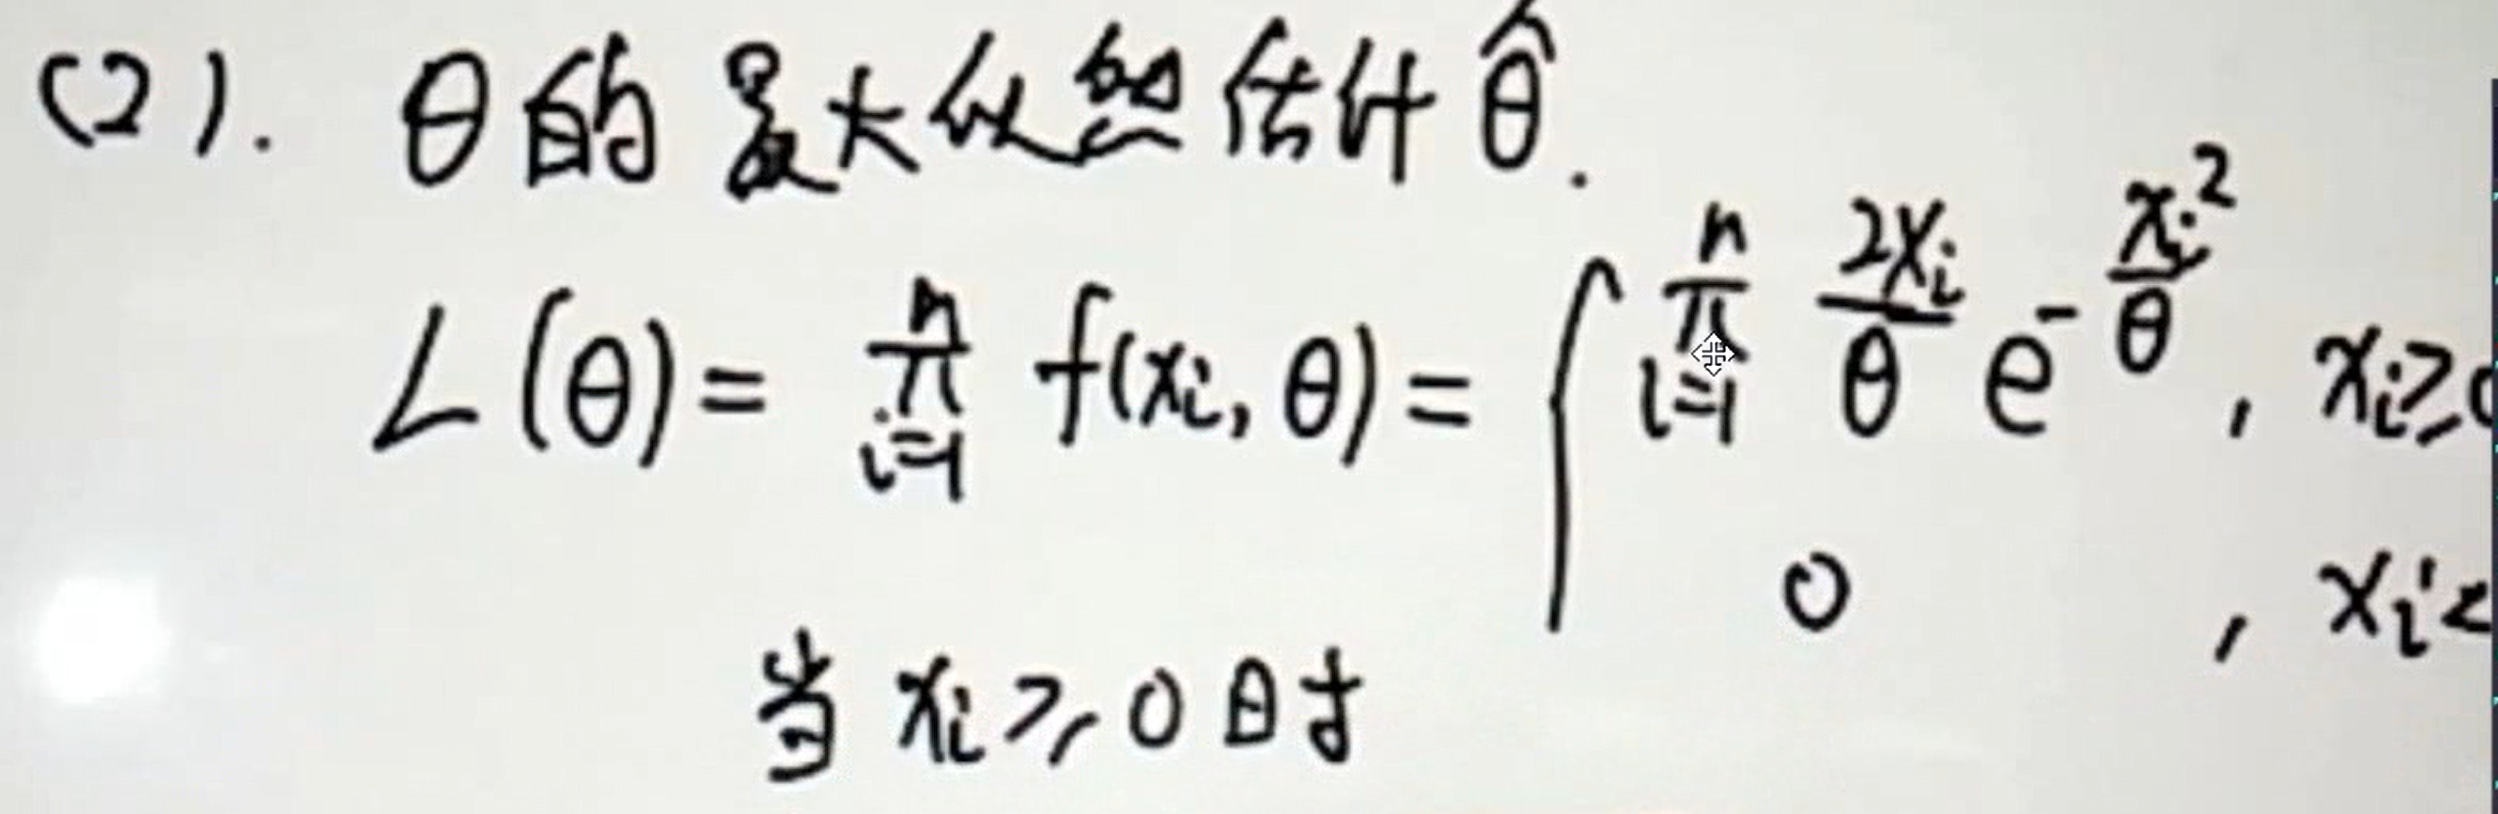 (2). θ的最大似然估计 θ̂.
L(θ)= ∏_{i=1}^{n} f(xi, θ)= { ∏_{i=1}^{n} 2xi/θ e^{-xi²/θ} , xi≥0
0 , xi<
当 xi≥0时